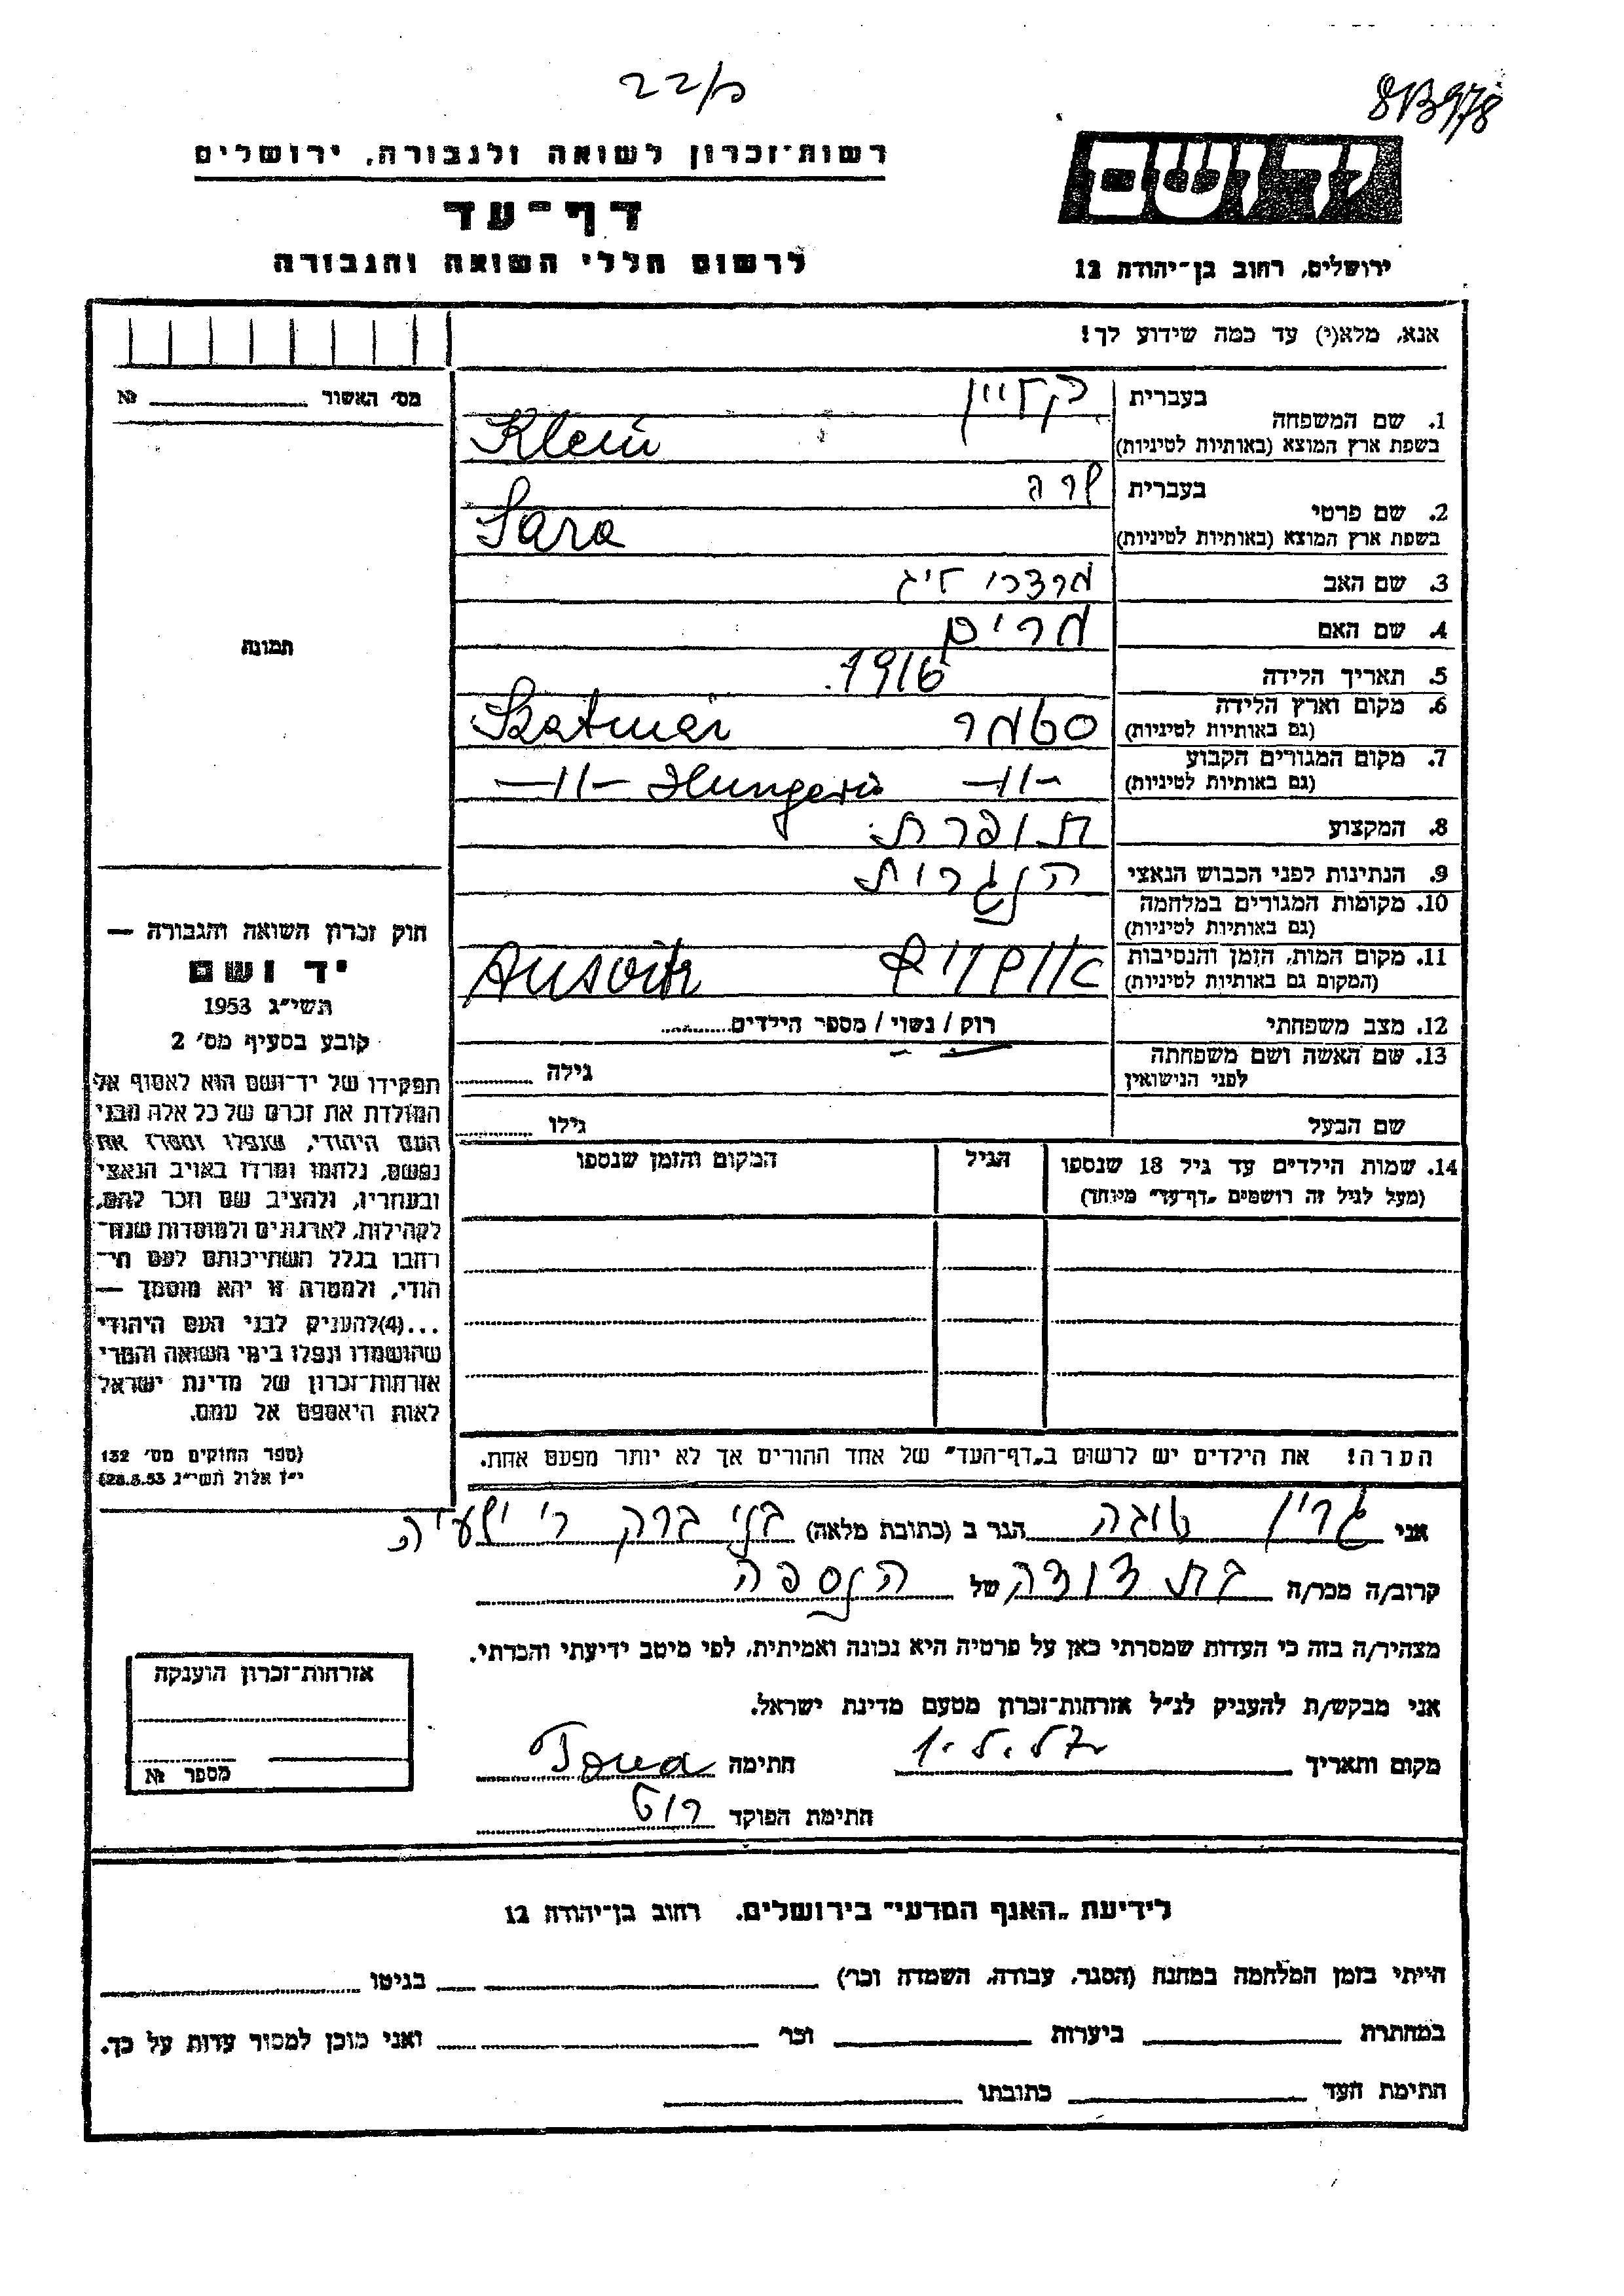 22/מ
813978
רשות־זכרון לשואה ולגבורה, ירושלים
דף־עד
לרשום חללי השואה והגבורה
ידושם
ירושלים, רחוב בן־יהודה 12
אנא, מלא(י) עד כמה שידוע לך!
מס׳ האשור № 
1. שם המשפחה
בעברית קליין
בשפת ארץ המוצא (באותיות לטיניות) Klein
2. שם פרטי
בעברית שרה
בשפת ארץ המוצא (באותיות לטיניות) Sara
3. שם האב מרדכי
4. שם האם מרים
5. תאריך הלידה 1916.
6. מקום וארץ הלידה סטמר
(גם באותיות לטיניות) Szatmar
7. מקום המגורים הקבוע —11—
(גם באותיות לטיניות) —11— Hungeria
8. המקצוע תופרת.
9. הנתינות לפני הכבוש הנאצי הנגרות
10. מקומות המגורים במלחמה
(גם באותיות לטיניות)
11. מקום המות, הזמן והנסיבות
(המקום גם באותיות לטיניות) Ausvitz
12. מצב משפחתי רוק / נשוי / מספר הילדים
13. שם האשה ושם משפחתה
לפני הנישואין גילה
שם הבעל גילו
14. שמות הילדים עד גיל 18 שנספו הגיל המקום והזמן שנספו
(מעל לגיל זה רושמים „דף־עד״ מיוחד)
הערה! את הילדים יש לרשום ב„דף־העד״ של אחד ההורים אך לא יותר מפעם אחת.
תמונה
חוק זכרון השואה והגבורה —
יד ושם
תשי״ג 1953
קובע בסעיף מס׳ 2
תפקידו של יד־ושם הוא לאסוף אל
המולדת את זכרם של כל אלה מבני
העם היהודי, שנפלו ומסרו את
נפשם, נלחמו ומרדו באויב הנאצי
ובעוזריו, ולהציב שם וזכר להם,
לקהילות, לארגונים ולמוסדות שנח־
רבו בגלל השתייכותם לעם הי־
הודי, ולמטרה זו יהא מוסמך —
...(4)להעניק לבני העם היהודי
שהושמדו ונפלו בימי השואה והמרי
אזרחות־זכרון של מדינת ישראל
לאות היאספם אל עמם.
(ספר החוקים מס׳ 132
י״ז אלול תשי״ג 28.8.53)
אני גרין טובה הגר ב (כתובת מלאה) בני ברק ר׳ ישעיה
קרוב/ה מכר/ה בת דודה של הנספה
מצהיר/ה בזה כי העדות שמסרתי כאן על פרטיה היא נכונה ואמיתית, לפי מיטב ידיעתי והכרתי.
אני מבקש/ת להעניק לנ״ל אזרחות־זכרון מטעם מדינת ישראל.
מקום ותאריך חתימה Towa
חתימת הפוקד רוט
אזרחות־זכרון הוענקה
מספר №
לידיעת „האגף המדעי״ בירושלים. רחוב בן־יהודה 12
הייתי בזמן המלחמה במחנה (הסגר, עבודה, השמדה וכר׳) בגיטו
במחתרת ביערות וכר׳ ואני מוכן למסור עדות על כך.
חתימת העד כתובתו